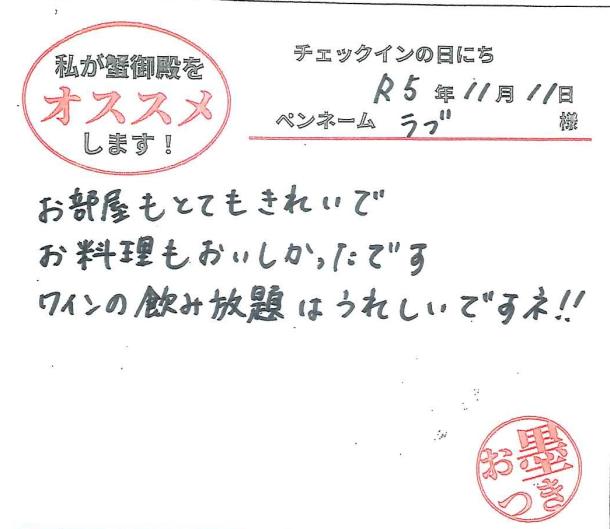 私が蟹御殿を
オススメ
します！
チェックインの日にち
R5年11月11日
ペンネーム ラブ 様
お部屋もとてもきれいで
お料理もおいしかったです
ワインの飲み放題はうれしいですネ!!
お墨
つき